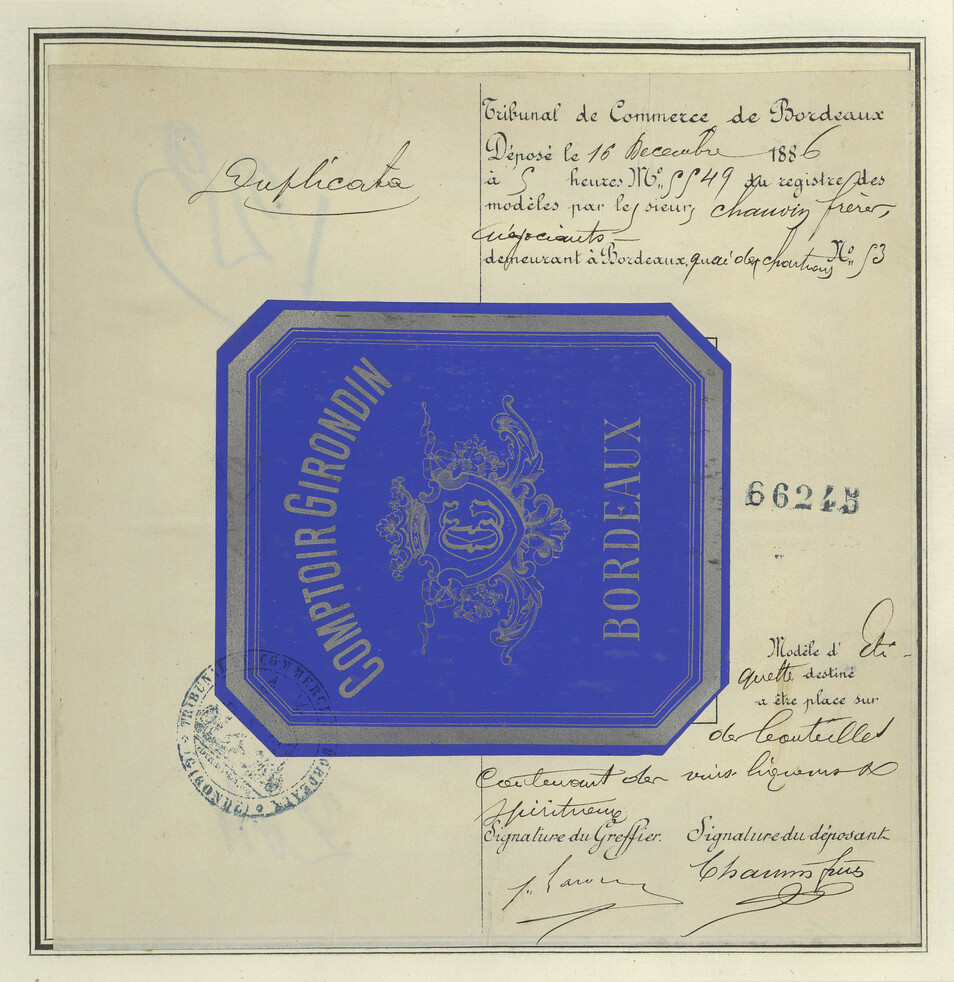 Duplicata
Tribunal de Commerce de Bordeaux
Déposé le 16 Decembre 1886
à 5 heures Nº 5549 du registre des
modèles par les sieurs Chauvin frères,
négociants
demeurant à Bordeaux, quai des Chartrons Nº 53
COMPTOIR GIRONDIN
BORDEAUX
66245
Modèle d' Eti-
quette destiné
a être place sur
des bouteilles
contenant des vins liqueurs &
spiritueux
Signature du Greffier. Signature du déposant
Chauvin frères
TRIBUNAL DE COMMERCE BORDEAUX (GIRONDE)